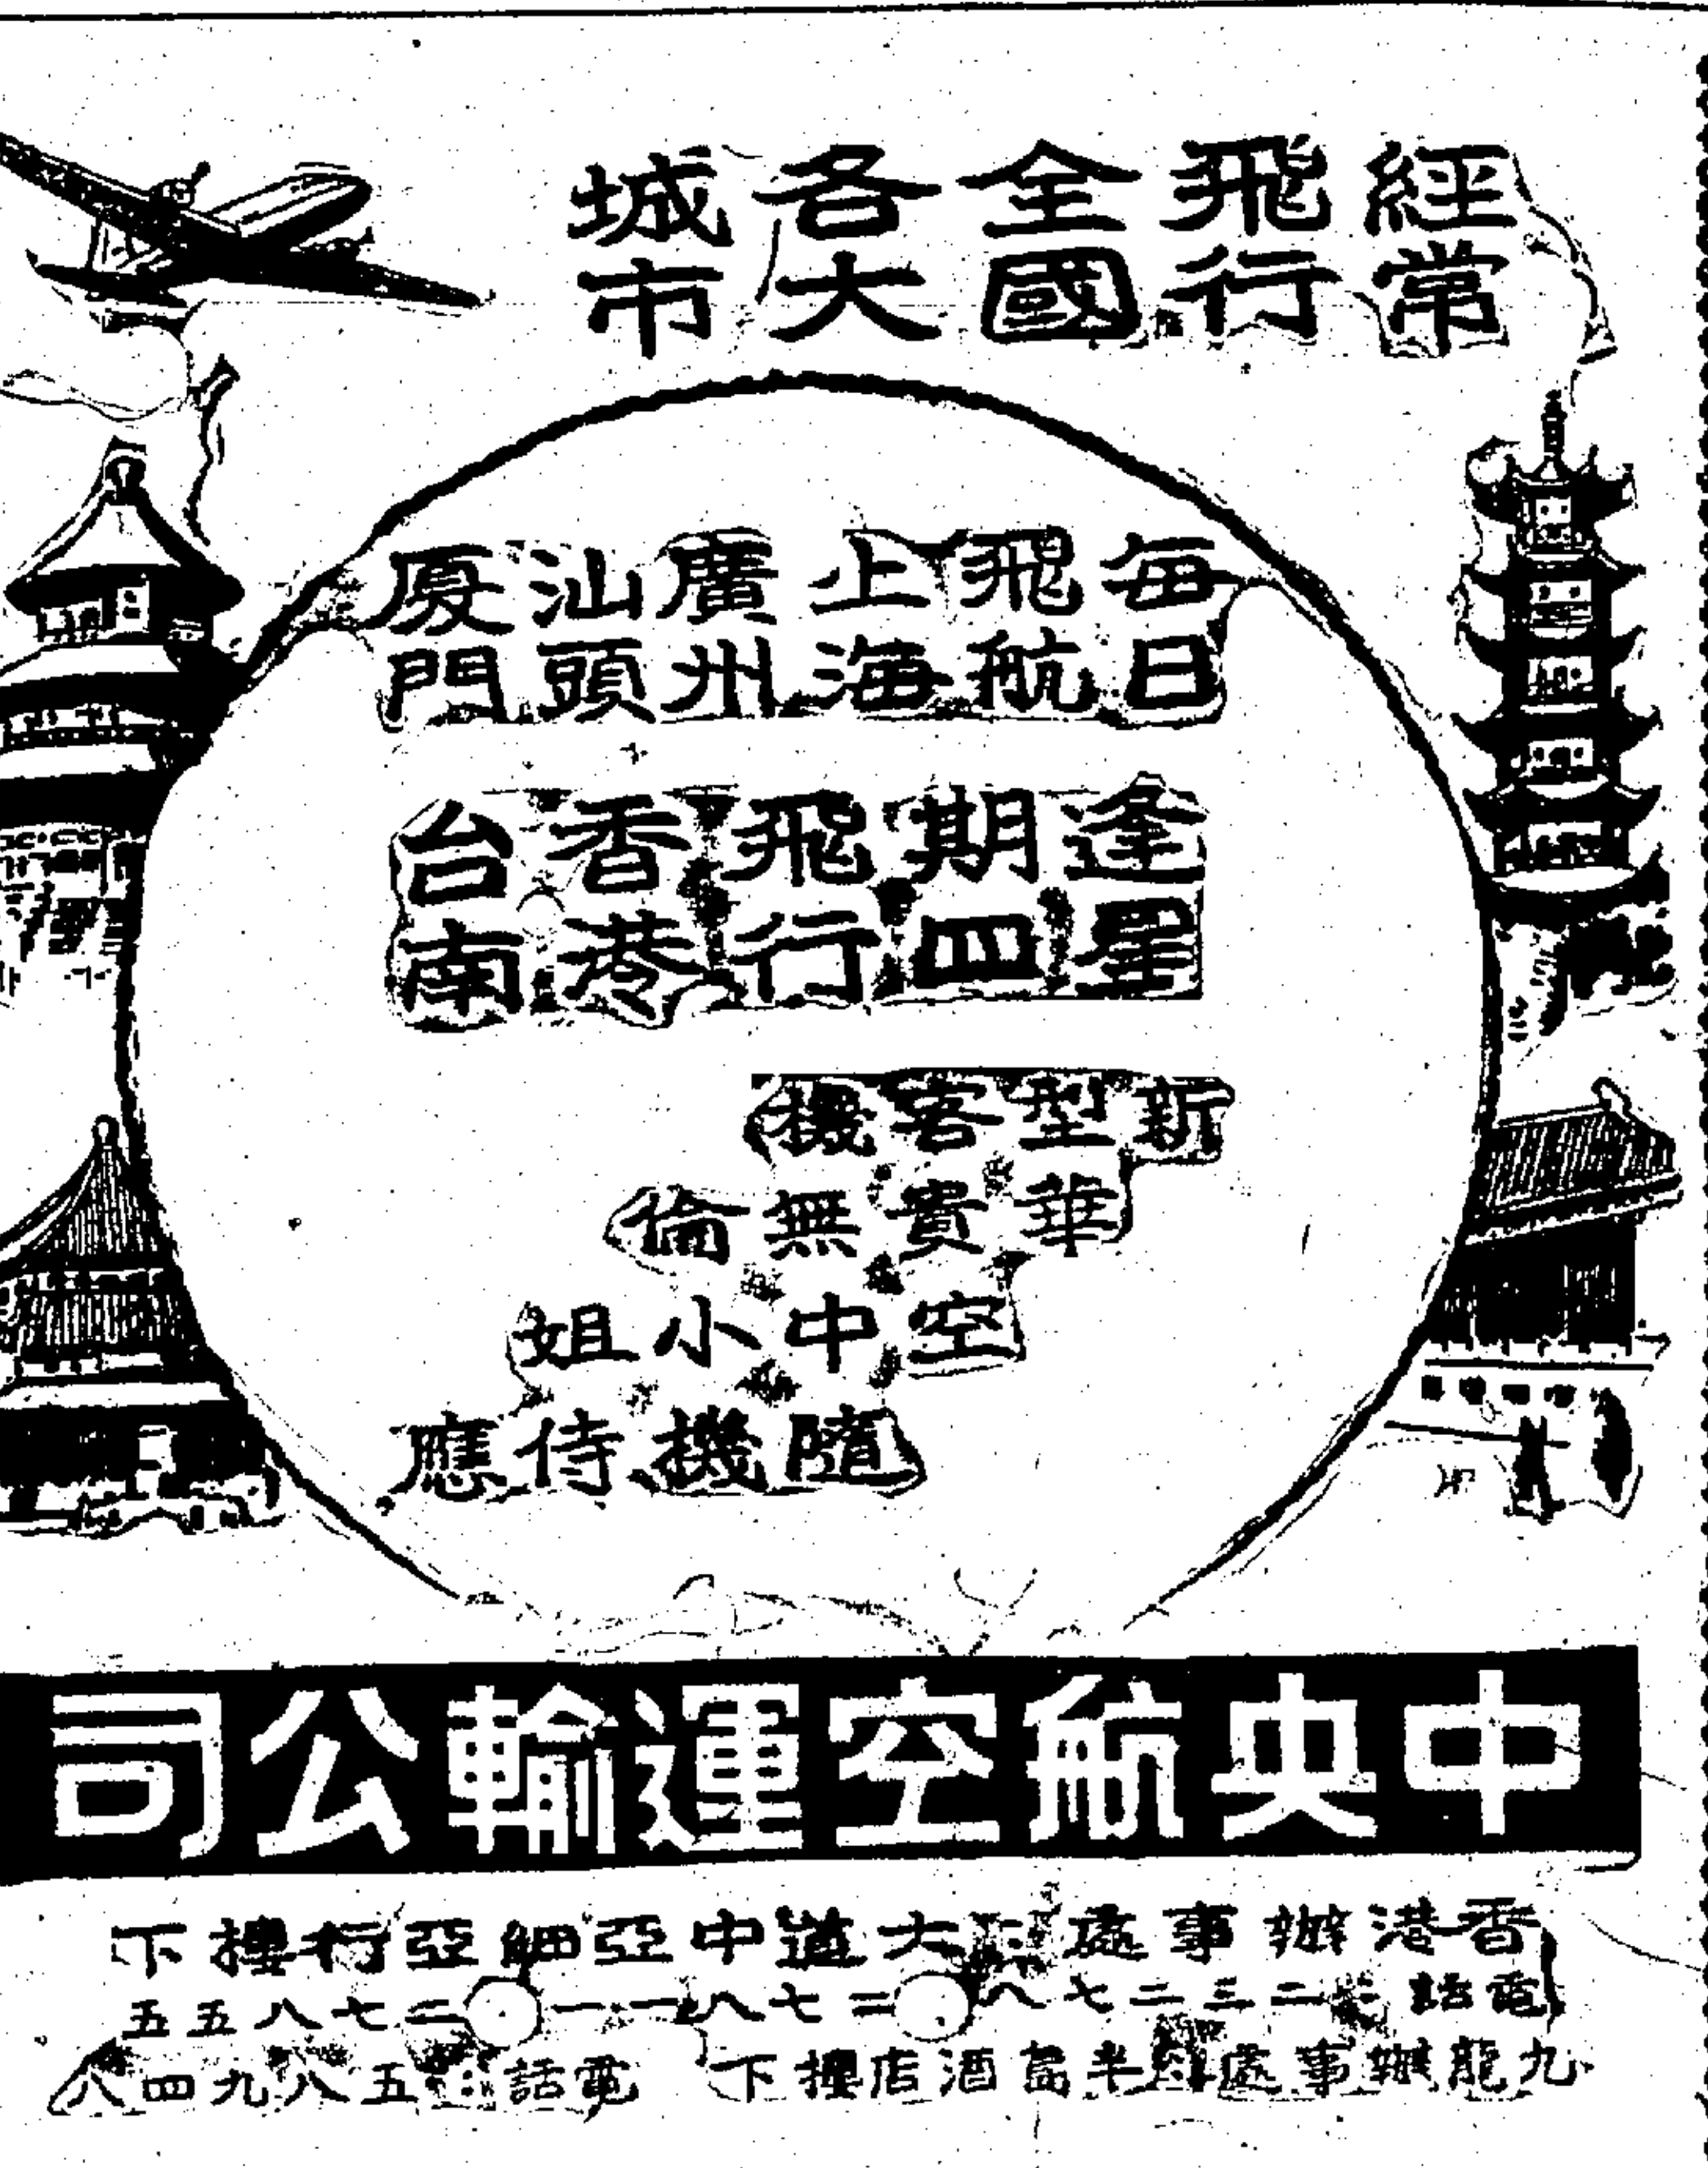 經常飛行全國各大城市
每日飛航上海廣州汕頭廈門
逢星期四飛行香港台南
新型客機
華貴無倫
空中小姐
隨機侍應
中央航空運輸公司
香港辦事處 大道中亞細亞行樓下
電話 二三二七八 二七八一一 二七八五五
九龍辦事處 半島酒店樓下 電話 五八九四八